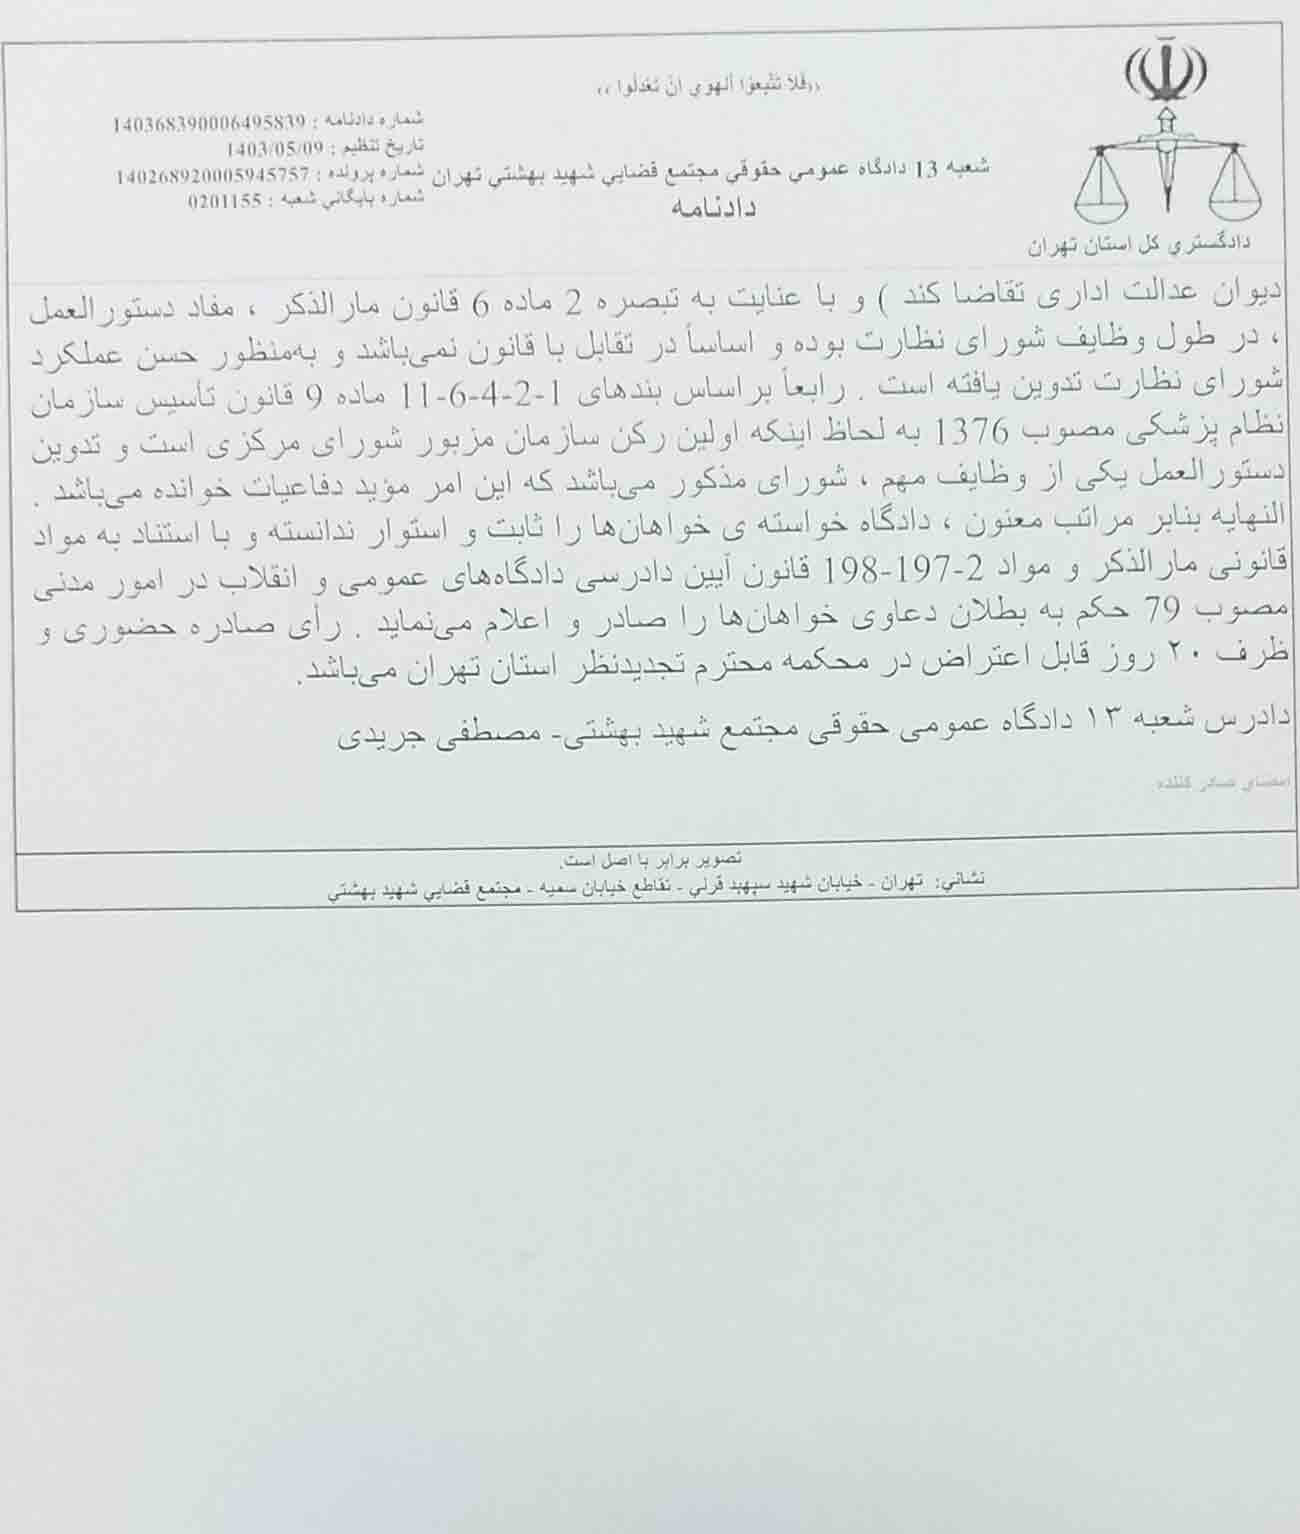 «فَلا تَتَّبِعوُا اَلهَوي اَنْ تَعْدِلُوا»
شماره دادنامه : 140368390006495839
تاریخ تنظیم : 1403/05/09
شماره پرونده : 140268920005945757
شماره بایگاني شعبه : 0201155
شعبه 13 دادگاه عمومي حقوقي مجتمع قضايي شهید بهشتي تهران
دادنامه
دادگستري کل استان تهران
دیوان عدالت اداری تقاضا کند ) و با عنایت به تبصره 2 ماده 6 قانون مارالذکر ، مفاد دستورالعمل
، در طول وظایف شورای نظارت بوده و اساساً در تقابل با قانون نمی‌باشد و به‌منظور حسن عملکرد
شورای نظارت تدوین یافته است . رابعاً براساس بندهای 1-2-4-6-11 ماده 9 قانون تأسیس سازمان
نظام پزشکی مصوب 1376 به لحاظ اینکه اولین رکن سازمان مزبور شورای مرکزی است و تدوین
دستورالعمل یکی از وظایف مهم ، شورای مذکور می‌باشد که این امر مؤید دفاعیات خوانده می‌باشد .
النهایه بنابر مراتب معنون ، دادگاه خواسته ی خواهان‌ها را ثابت و استوار ندانسته و با استناد به مواد
قانونی مارالذکر و مواد 2-197-198 قانون آیین دادرسی دادگاه‌های عمومی و انقلاب در امور مدنی
مصوب 79 حکم به بطلان دعاوی خواهان‌ها را صادر و اعلام می‌نماید . رأی صادره حضوری و
ظرف ۲۰ روز قابل اعتراض در محکمه محترم تجدیدنظر استان تهران می‌باشد.
دادرس شعبه ۱۳ دادگاه عمومی حقوقی مجتمع شهید بهشتی- مصطفی جریدی
امضاي صادر کننده
تصویر برابر با اصل است.
نشاني: تهران - خیابان شهید سپهبد قرني - تقاطع خیابان سمیه - مجتمع قضايي شهید بهشتي